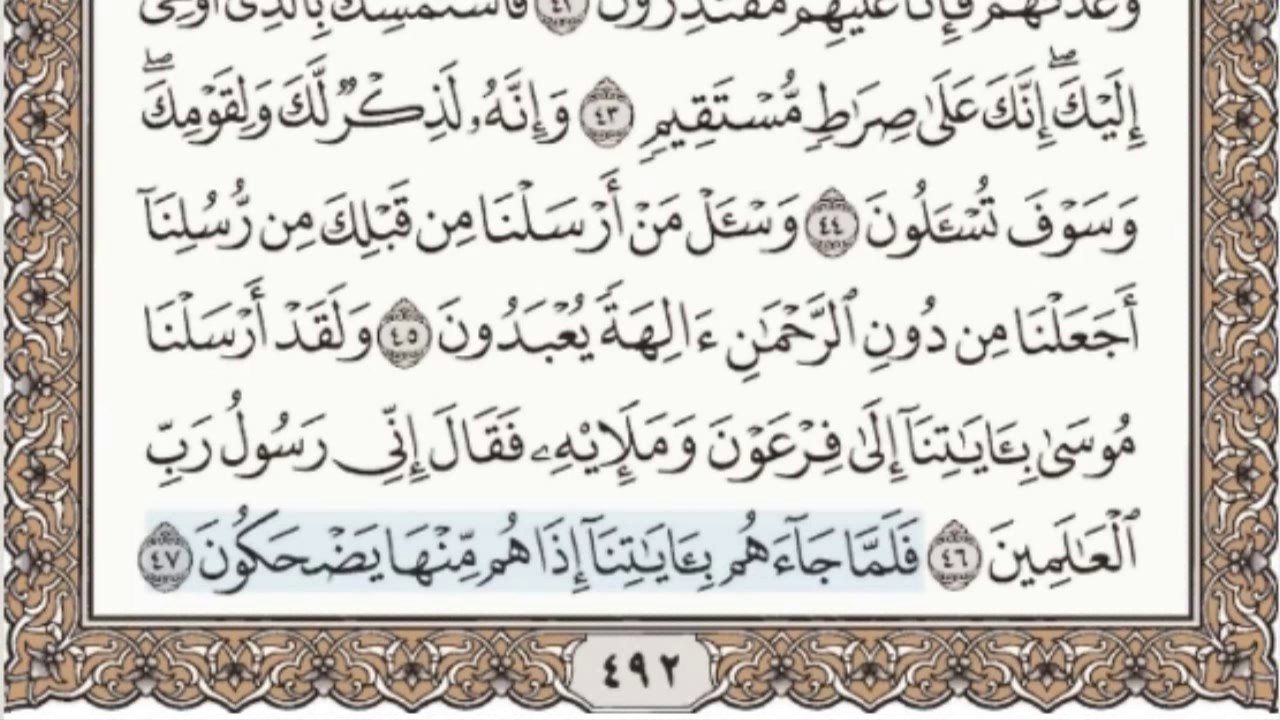 وَعَدْنَٰهُمْ فَإِنَّا عَلَيْهِم مُّقْتَدِرُونَ ٤٢ فَٱسْتَمْسِكْ بِٱلَّذِىٓ أُوحِىَ
إِلَيْكَ ۖ إِنَّكَ عَلَىٰ صِرَٰطٍ مُّسْتَقِيمٍ ٤٣ وَإِنَّهُۥ لَذِكْرٌ لَّكَ وَلِقَوْمِكَ ۖ
وَسَوْفَ تُسْـَٔلُونَ ٤٤ وَسْـَٔلْ مَنْ أَرْسَلْنَا مِن قَبْلِكَ مِن رُّسُلِنَآ
أَجَعَلْنَا مِن دُونِ ٱلرَّحْمَٰنِ ءَالِهَةً يُعْبَدُونَ ٤٥ وَلَقَدْ أَرْسَلْنَا
مُوسَىٰ بِـَٔايَٰتِنَآ إِلَىٰ فِرْعَوْنَ وَمَلَإِيْهِۦ فَقَالَ إِنِّى رَسُولُ رَبِّ
ٱلْعَٰلَمِينَ ٤٦ فَلَمَّا جَآءَهُم بِـَٔايَٰتِنَآ إِذَا هُم مِّنْهَا يَضْحَكُونَ ٤٧
٤٩٢